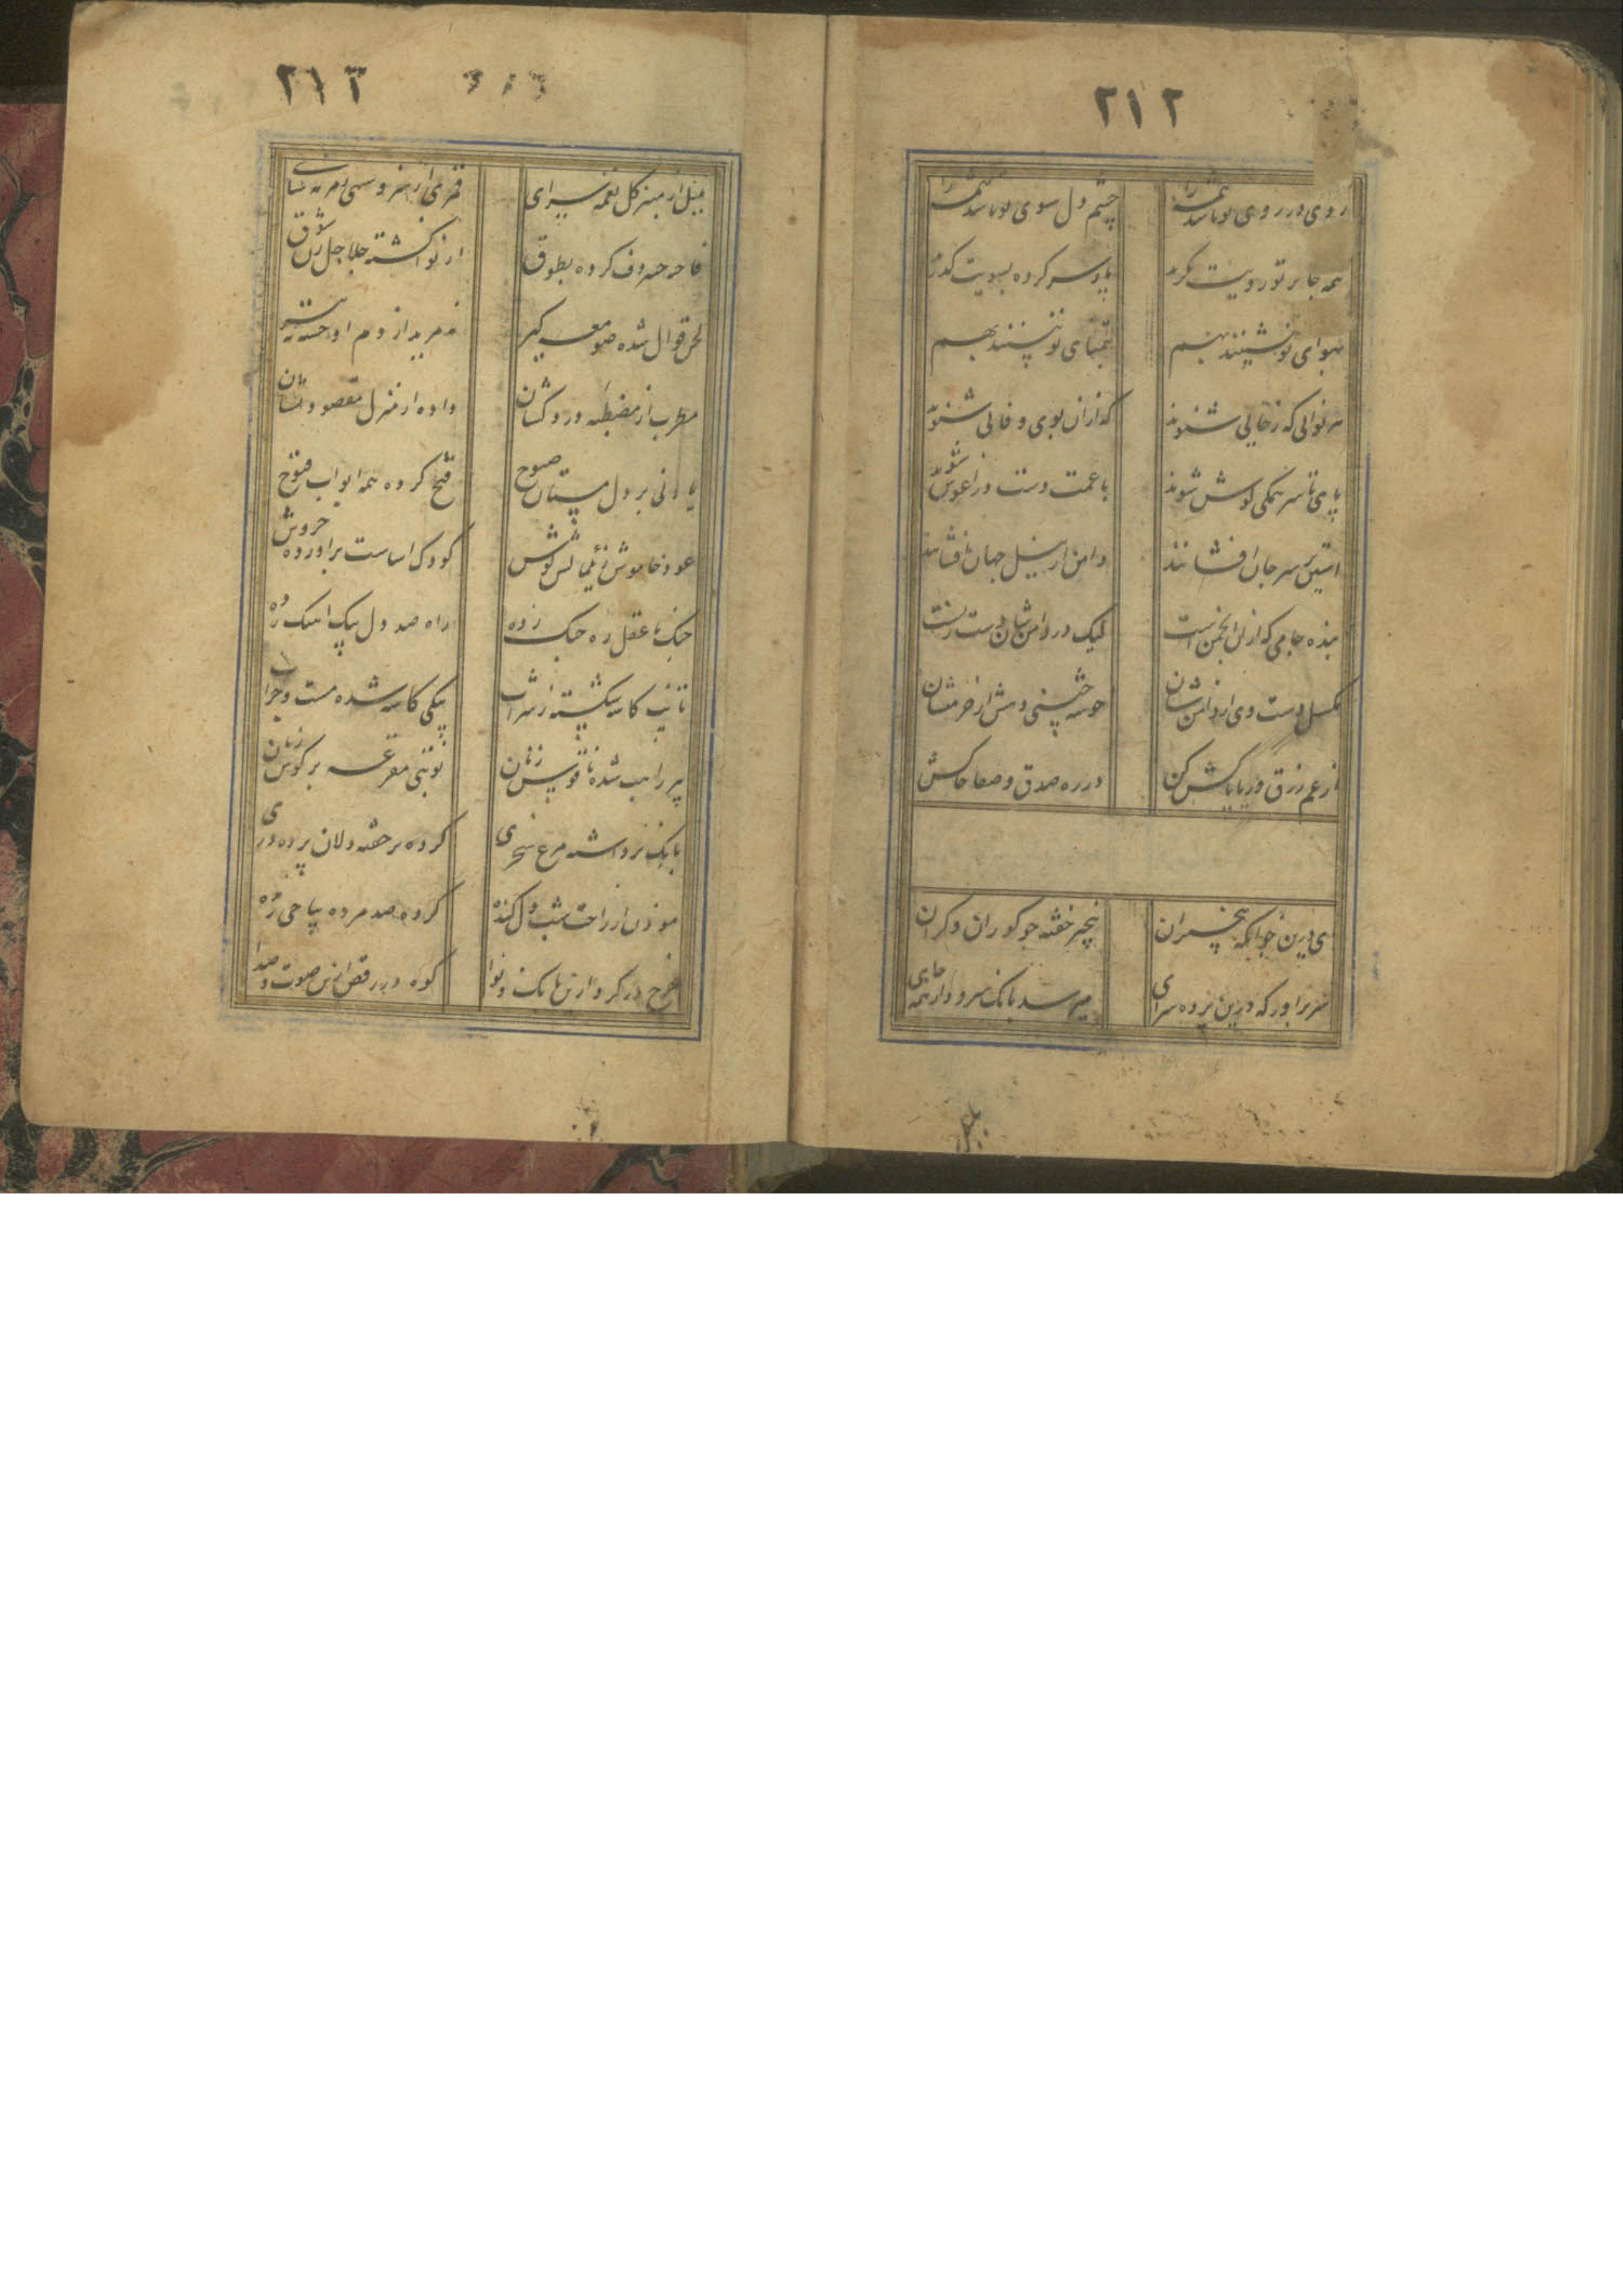 ۲۱۲
روی در روی تو باشد همه را چشم دل سوی تو باشد همه را
همه جا پرتو رویت نگرند پا و سر کرده بسویت گذرند
بهوای تو نشینند بهم بتمنای تو پسندند بهم
هر نوائی که ز جایی شنوند که ازان بوی وفائی شنوند
پای تا سر همگی گوش شوند با غمت دست در آغوش شوند
آستین بر سر جان افشانند دامن از نیل جهان افشانند
بنده جامی که ازان انجمن است لیک در دامنشان دست زنست
مگسل دست وی از دامنشان خوشه چینی دهش از خرمنشان
از عم رزق و ریا پاکش کن در ره صدق و صفا خاکش
ای درین خوابگه بیخبران بیخبر خفته جو کوران و کران
سر برآور که درین پرده سرای میرسد بانک سرود از همه جای
۲۱۳
بلبل از منبر کل نغمه سرای قمری از سرو سهی زمزمه سای
فاخته چنبر دف کرده بطوق از نوا گشته جلاجل زن شوق
لحن قوال شده صومعه گیر نه مرید از دم او جسته نه پیر
مطرب از مصطبه دردکشان داده از منزل مقصود نشان
باد نی بر دل مستان صبوح فتح کرده همه ابواب فتوح
عود خاموش ز یک مالش گوش کودک اساست برآورده خروش
چنک با عقل ره جنک زده راه صد دل بیک آهنک زده
تائب کاسه شکسته ز شراب بیکی کاسه شده مست و خراب
پیر راهب شده ناقوس زنان نوبتی مقرعه بر کوس زنان
بانک برداشته مرغ سحری کرده بر خفته دلان پرده دری
موذن از راحت شب دل کنده کرده صد مرده بیا حی زنده
چرخ در کردارین بانک و نوا کوه در رقص ازین صوت و صدا